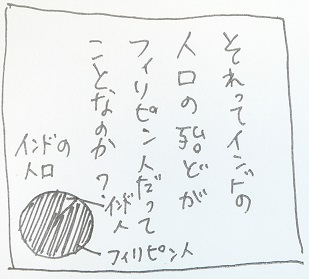 とそれってインドの
人口の殆どが
フィリピン人だって
ことなのか?
インドの
人口
インド
人
フィリピン人